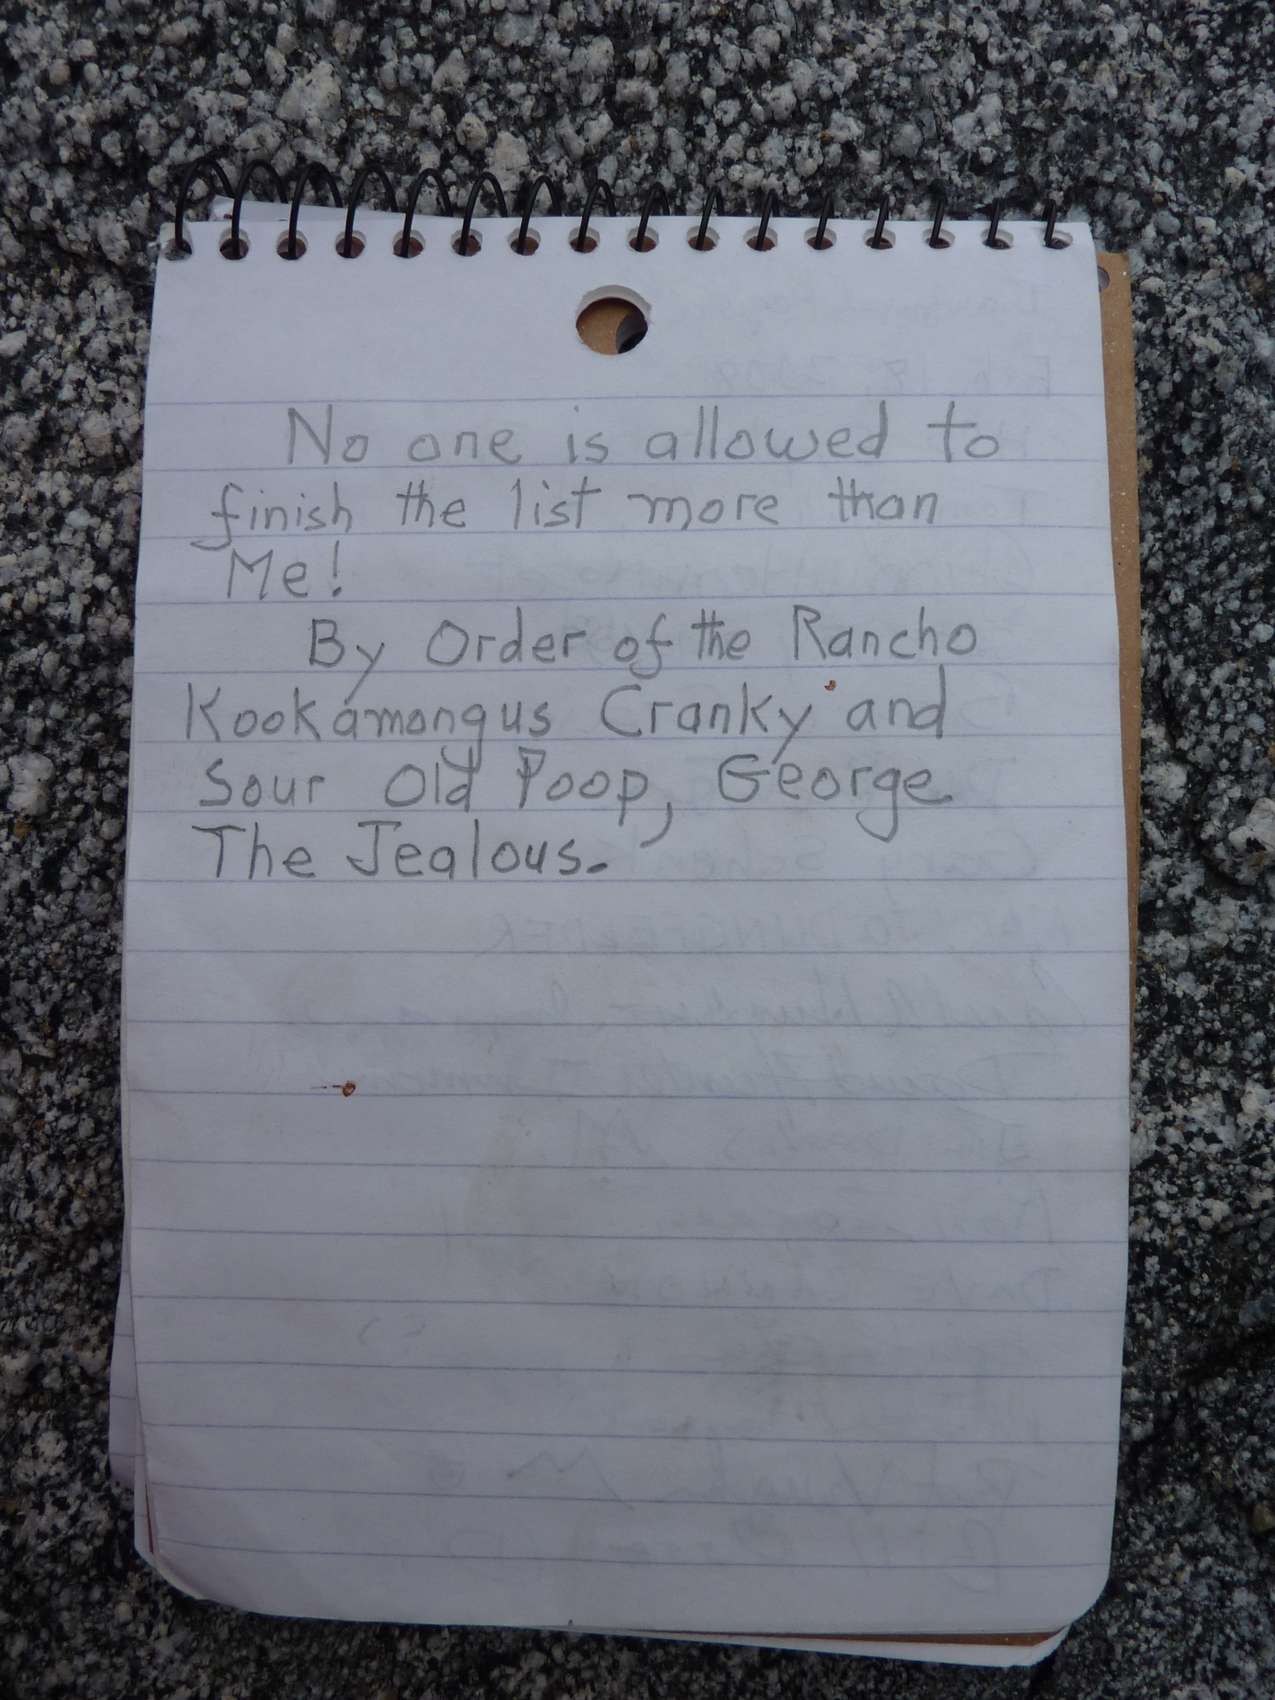 No one is allowed to
finish the list more than
Me!
By Order of the Rancho
Kookamongus Cranky and
Sour Old Poop, George
The Jealous.